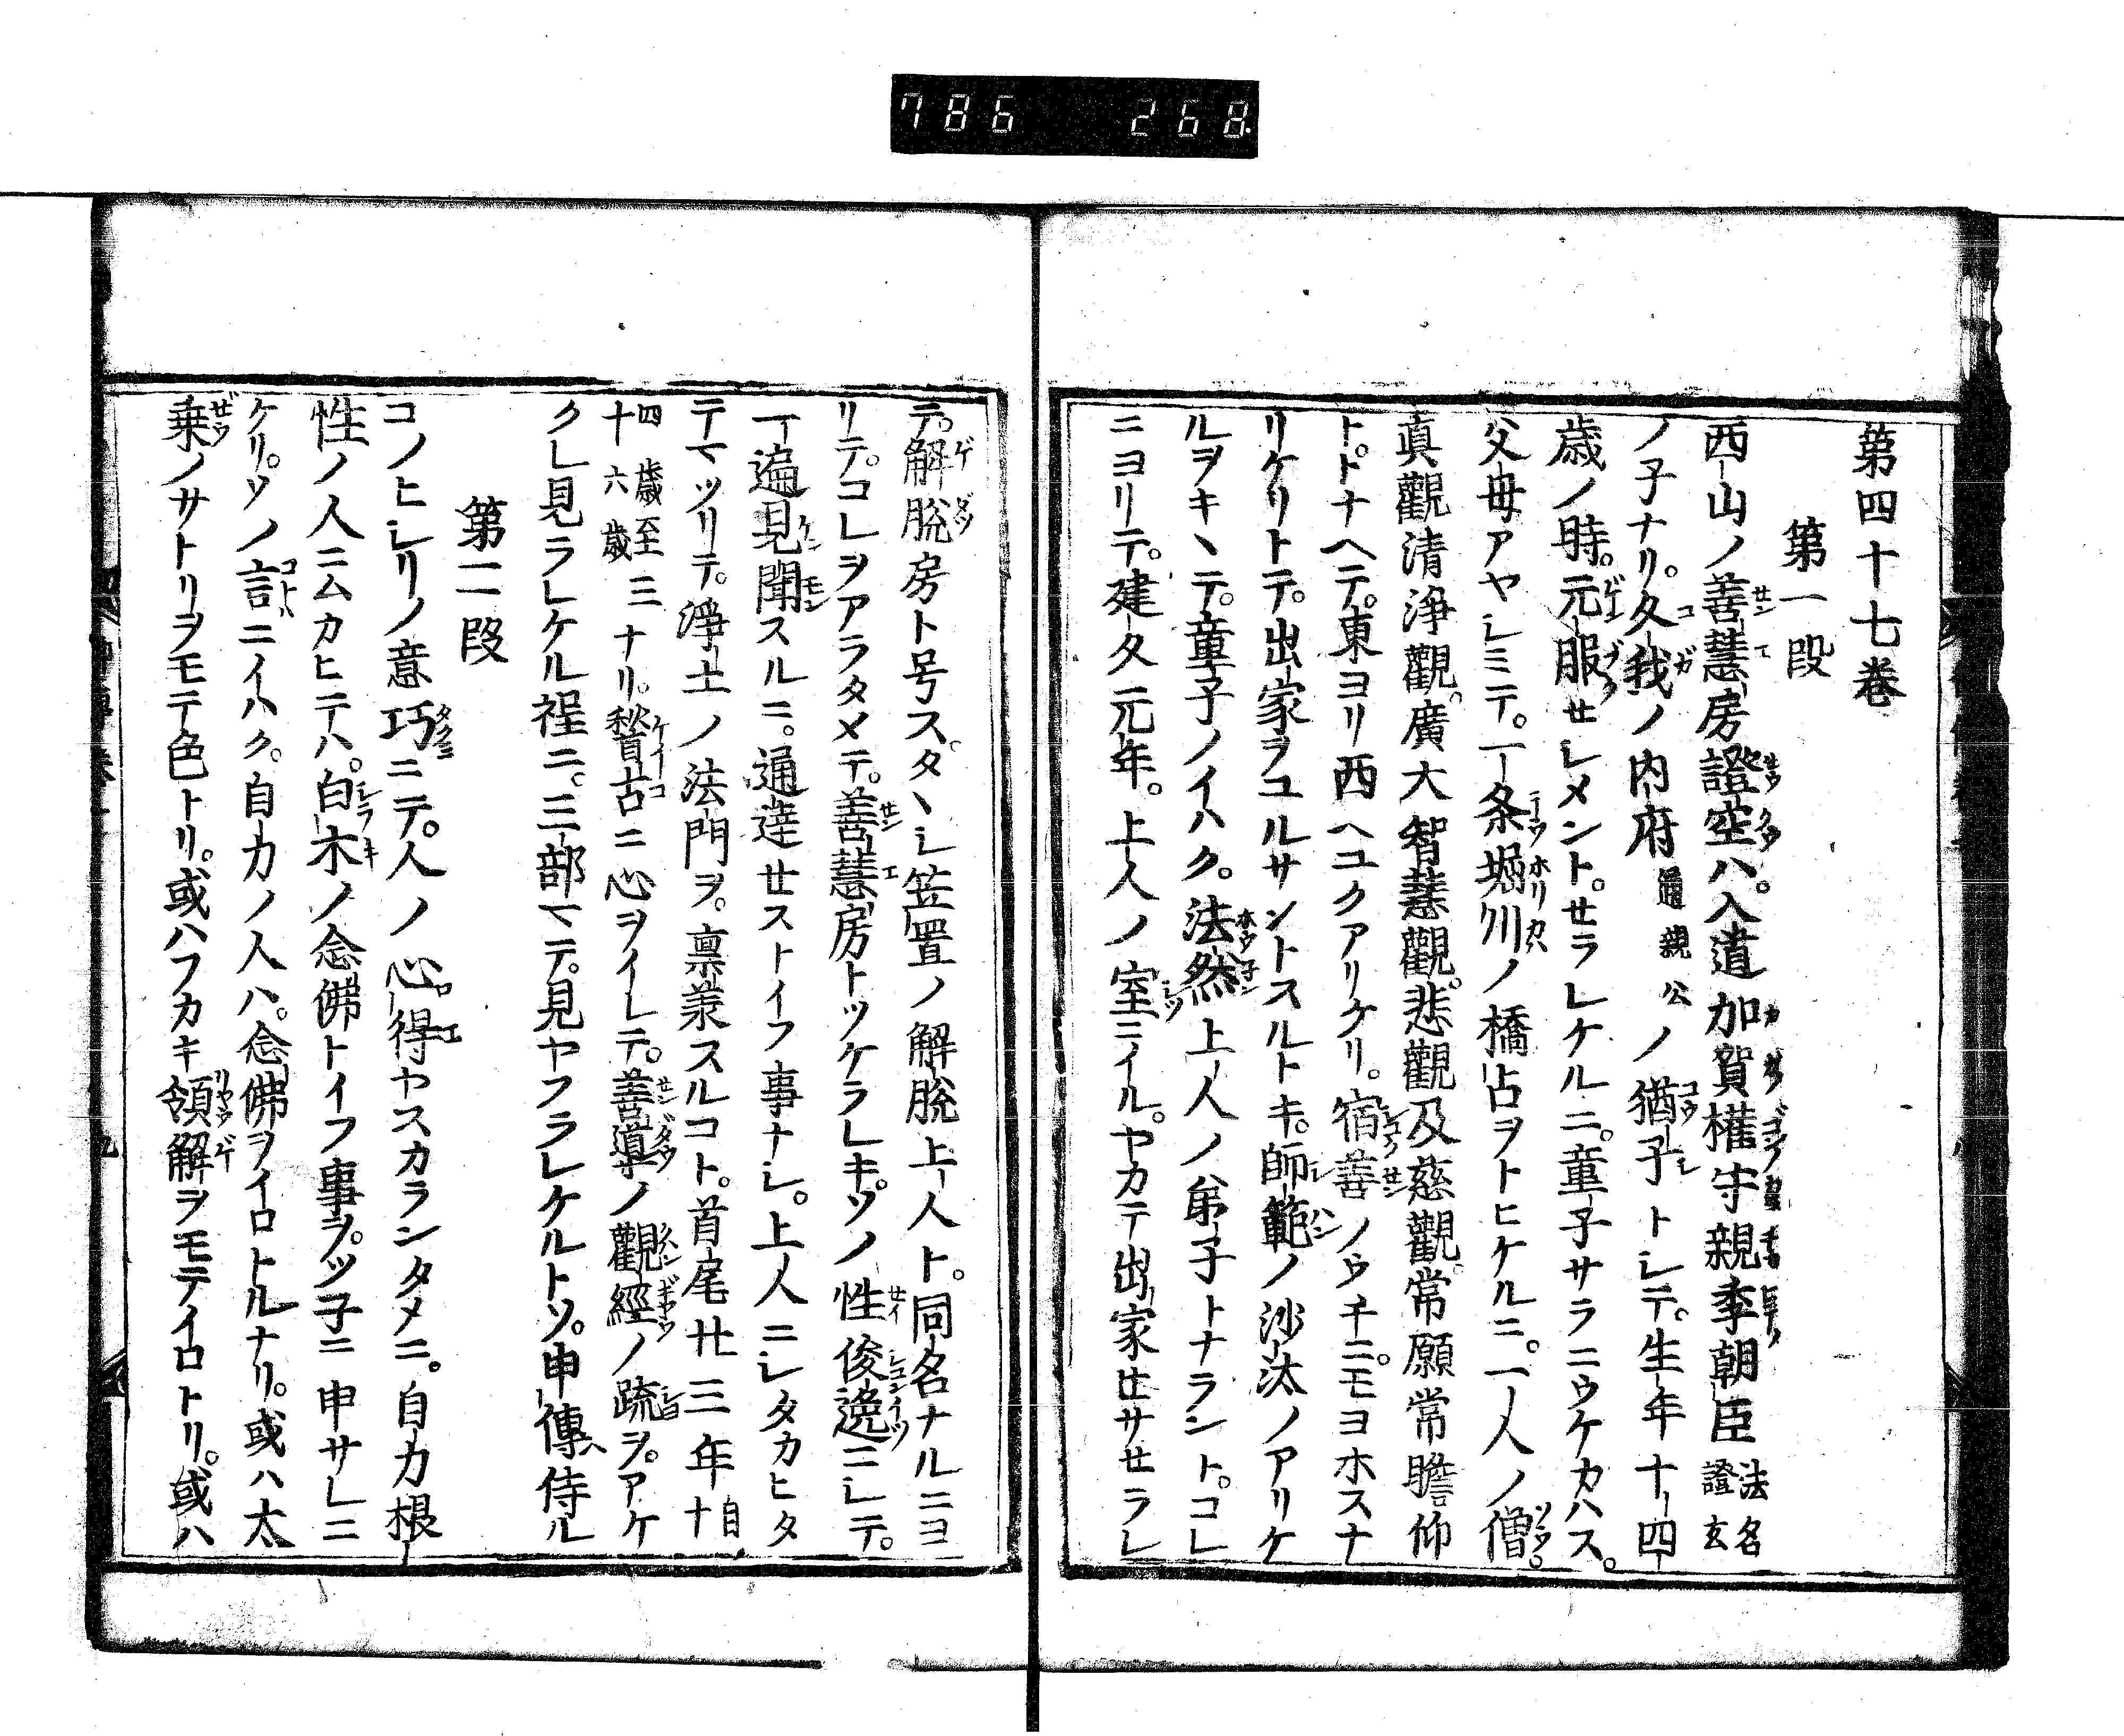 786 268.
第四十七卷
第一段
西山ノ善慧房證空ハ。入道加賀權守親季朝臣法名證玄
ノ子ナリ。久我ノ内府通親公ノ猶子トシテ。生年十四
歳ノ時。元服セシメント。セラレケルニ。童子サラニウケカハス。
父母アヤシミテ。一条堀川ノ橋占ヲトヒケルニ。一人ノ僧。
眞觀清淨觀。廣大智慧觀。悲觀及慈觀。常願常瞻仰
ト。トナヘテ。東ヨリ西ヘユクアリケリ。宿善ノウチニ。モヨホスナ
リケリトテ。出家ヲユルサントスルトキ。師範ノ沙汰ノアリケ
ルヲキヽテ。童子ノイハク。法然上人ノ弟子トナラント。コレ
ニヨリテ。建久元年。上人ノ室ニイル。ヤカテ出家セサセラレ
テ。解脫房ト号ス。タヽシ笠置ノ解脫上人ト。同名ナルニヨ
リテ。コレヲアラタメテ。善慧房トツケラレキ。ソノ性俊逸ニシテ。
一遍見聞スルニ。通達セストイフ事ナシ。上人ニシタカヒタ
テマツリテ。淨土ノ法門ヲ。稟兼スルコト。首尾廿三年自十
四歳至十六歳三ナリ。稽古ニ心ヲイレテ。善導ノ觀經ノ疏ヲ。アケ
クレ見ラレケル程ニ。三部マテ。見ヤフラレケルトソ。申傳ヘ侍ル
第二段
コノヒシリノ意巧ニテ。人ノ心。得ヤスカランタメニ。自力根
性ノ人ニムカヒテハ。白木ノ念佛トイフ事ヲ。ツ子ニ申サレニ
ケリ。ソノ言ニイハク。自力ノ人ハ。念佛ヲイロトルナリ。或ハ大
乗ノサトリヲモテ色トリ。或ハフカキ領解ヲモテイロトリ。或ハ